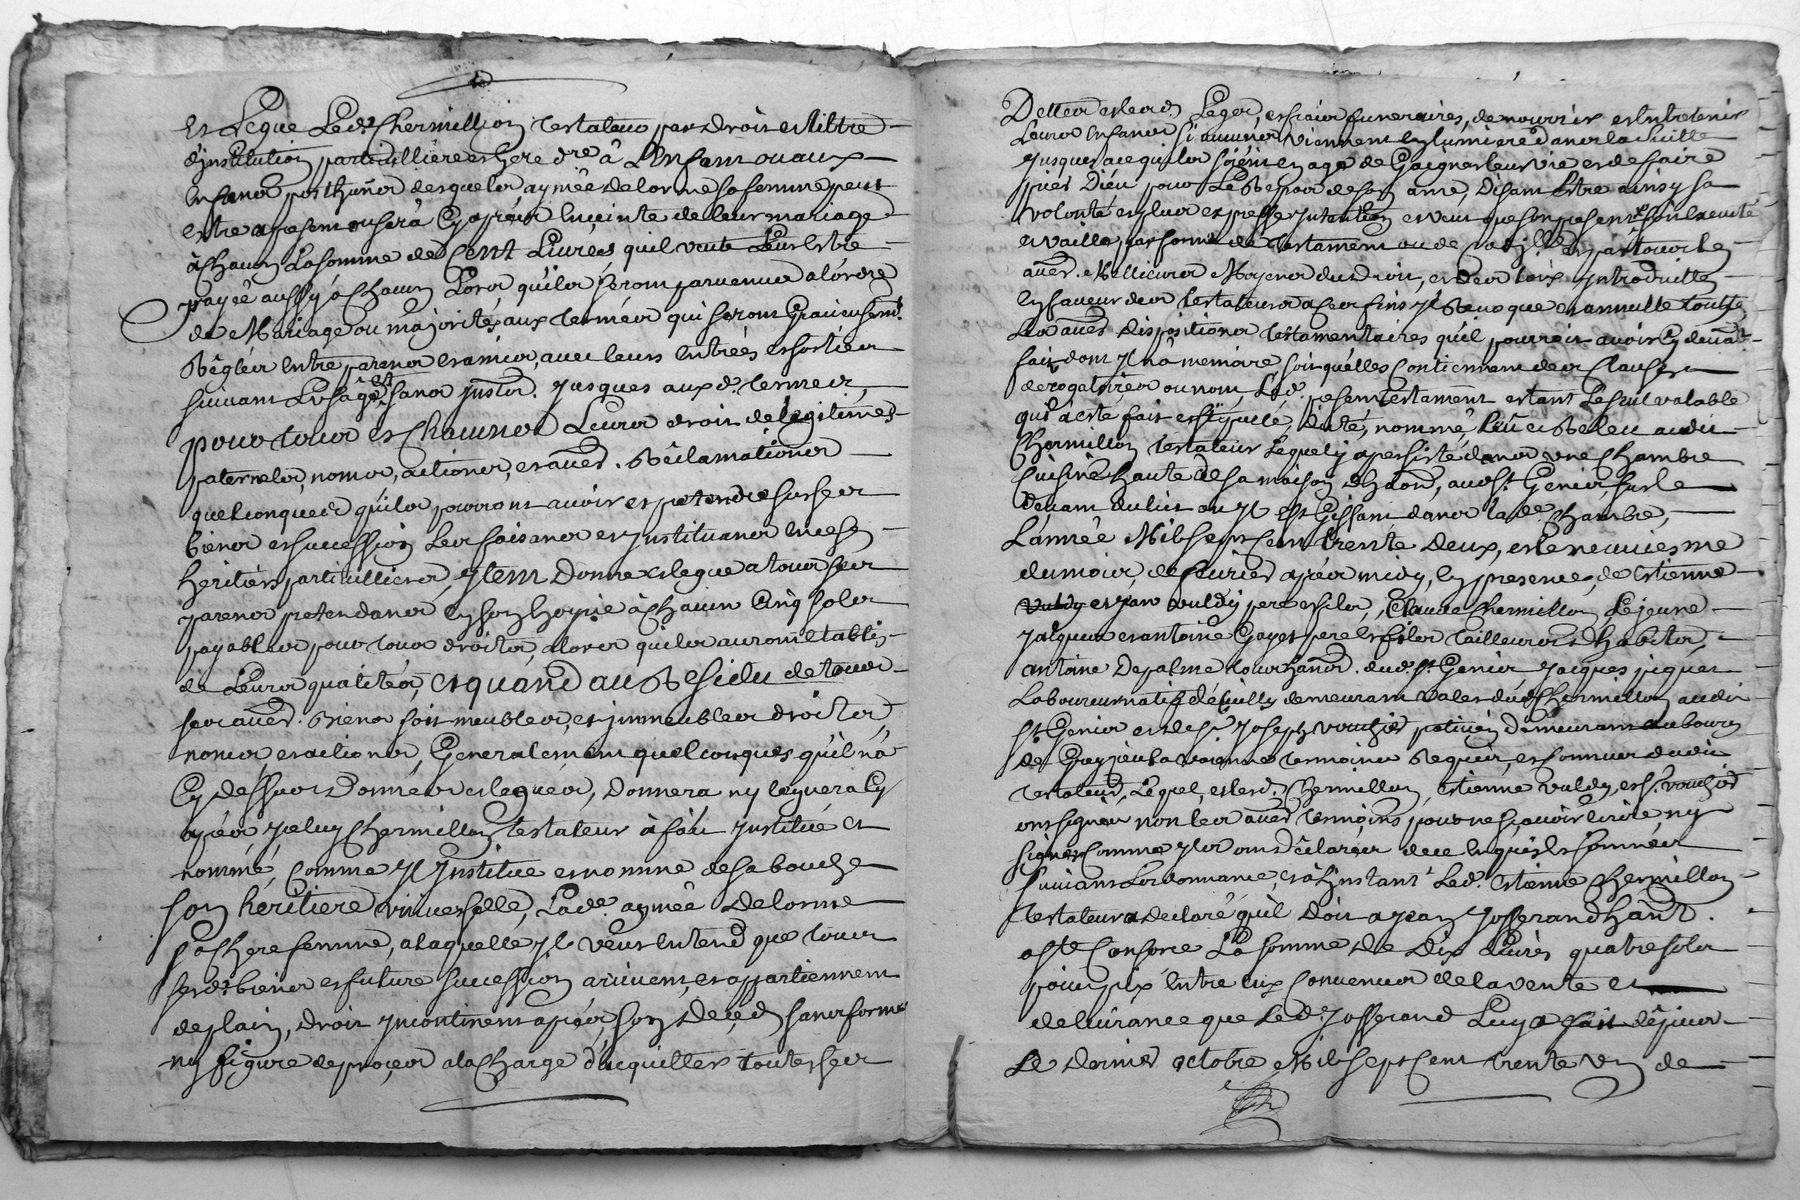 Et Legue Led. Chermillon testateur par droit et tiltre
d'institution particulliere et here dre à L'Enfant ou aux
Enfans posthumes desquels aymée delorme sa femme peut
estre apresent ou sera Cyaprès Enceinte de leur mariage
à chacun La somme de Cent Livres qu'il veute Leur Estre
payée aussy à chacun Lors qu'ils seront parvenus a l'ordre
de Mariage ou majorités aux termes qui seront Gracieusemt.
Reglés Entre parens et amis, avec leurs Entrées et sorties
suivant L'usage et sans jnstor. jusques aux d. termes,
pour tous et chacuns Leurs droits de legitimes
paternels, noms, actions, et autres. Réclamations
quelconques qu'ils pourront avoir et pretendre sur ses
biens et succession Les faisans et jnstituans mes
heritiers particulliers, jtem Donne et legue a tous ses
parens pretendans En son hoyrie à chacun Cinq sols
payables pour tous droits, alors qu'ils auront Etablis
de Leurs qualités, et quand au Residu de tous
ses autres. Biens soit meubles, et jmmeubles droits
noms et actions, Generalement quelconques qu'il n'a
Cy dessus Donnés et legués, Donnera ny leguera Cy
après jceluy Chermillon testateur à fait jnstitué et
nommé, Comme jl jnstitue et nomme de sa bouche
son heritiere universelle, Lade. aymée Delorme
sa chere femme, a laquelle jl veut Entend que tous
sesd. biens et future succession arivent, et appartiennent
de plain, droit jncontinent après son Decéd sans forme
ny figure de procès a la charge d'acquitter toutes ses
Dettes et lesd. Leges, et fraix funeraires, de nourrir et Entretenir
Leurs Enfans si aucuns viennent En lumiere dans la suitte
jusques a ce qu'ils soient En age de Gaigner leur vie et de faire
prier Dieu pour Le Repos de son ame, Disant Estre ainsy sa
volonté et plus expresse jntantion et veut que son present soit Executé
et vaille par forme de testament ou de Codille et par toutes
autres. Meilleures Moyens du droit, et des loix jntroduittes
En faveur des testateurs a ces fins jl Revoque et annulle toutes
Les autres Dispositions testamentaires qu'il pourroit avoir Cy devant
fait dont jl n'a memoire soit qu'elles Contiennent des Clauses
derogatoires ou non, Led. present testament estant Le seul valable
qu'il a esté fait et stipullé, Dicté, nommé, Lû et Releu audit
Chermillon testateur Lequel y a persisté dans une Chambre
Cuisine haute de sa maison dhaon, aud. St. Genis, sur le
devant du lict ou jl est Gissant dans lade. Chambre,
L'année Mil sept cent trente Deux, et le neuviesme
du mois, de fevrier après midy, En presence, de Estienne
et jean vuldy pere et fils, Claude Chermillon Lejeune
jacques et antoine Gayet pere et fils tailleurs d'habits,
antoine Depalme tous hants. dud. St. Genis, jacques piquet
Laboureur natif demeurant valet dud. Chermillon audit
St. Genis et de Sr. joseph vouchier praticien demeurant au bourg
de Grezieu la varenne temoins Requis, et connus dudit
testateur, Lequel, et lesd. Chermillon, Estienne vuldy, et S. vouchier
ont signé non les autres temoins pour ne sçavoir Ecrire ny
signer Comme jls ont déclaré de ce Enquis et sommés
suivant L'ordonnance, et à L'instant Led. Estienne Chermillon
testateur a declaré qu'il Doit a jean josserand hant.
a Ste Consorce La somme de Dix Livres quatre sols
pour prix Entre eux Convenus de la vente et
delivrance que Led. josserand Luy a fait dépuis
Le dernier octobre Mil sept Cent trente Un de